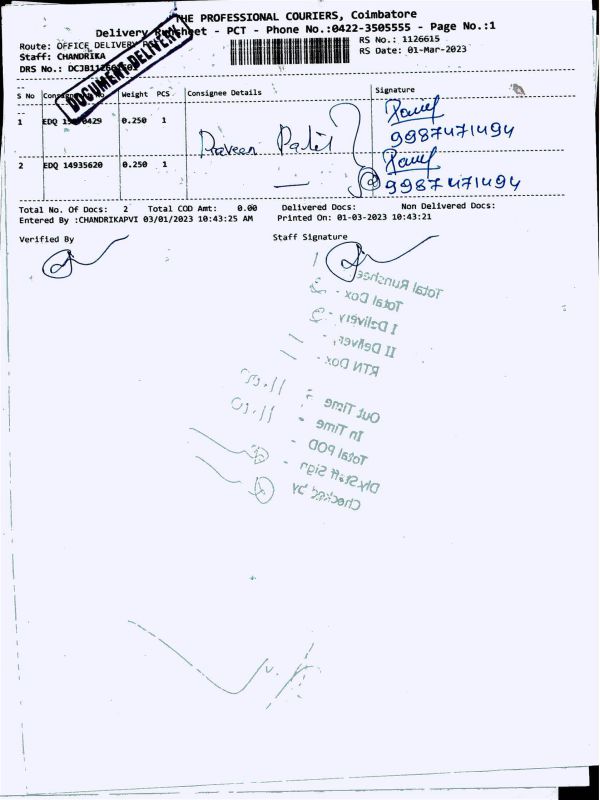 THE PROFESSIONAL COURIERS, Coimbatore
Delivery Runsheet - PCT - Phone No.:0422-3505555 - Page No.:1
Route: OFFICE DELIVERY
RS No.: 1126615
Staff: CHANDRIKA
RS Date: 01-Mar-2023
DRS No.:
DOCUMENT DELIVERY
S No Consignment No Weight PCS Consignee Details Signature
1 EDQ 0.250 1
9987471494
Praveen Patil
2 EDQ 14935620 0.250 1
9987471494
Total No. Of Docs: 2 Total COD Amt: 0.00 Delivered Docs: Non Delivered Docs:
Entered By :CHANDRIKAPVI 03/01/2023 10:43:25 AM Printed On: 01-03-2023 10:43:21
Verified By Staff Signature
Total Runsheet
Total Dox -
I Delivery -
II Delivery -
RTN Dox -
Out Time
In Time -
Total POD -
Dly.Staff Sign -
Checked by